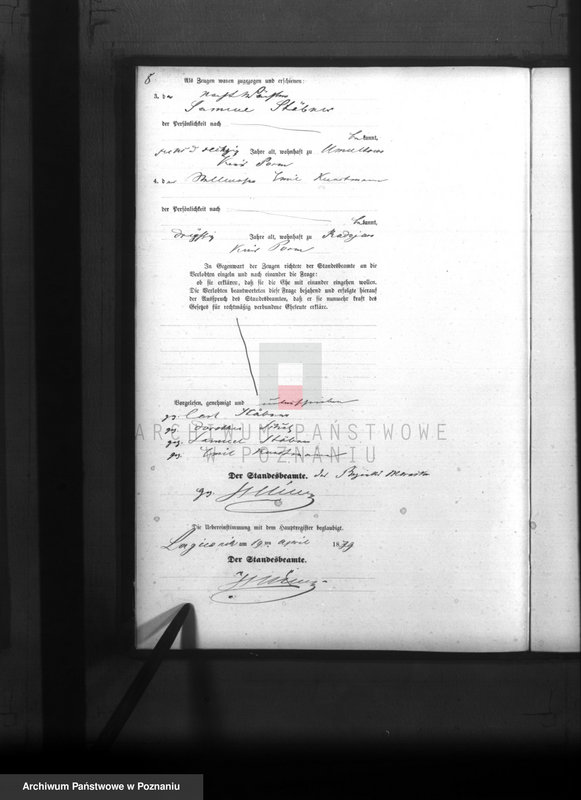 8
Als Zeugen waren zugezogen und erschienen:
3. der
Samuel Stöbner
der Persönlichkeit nach
bekannt,
Jahre alt, wohnhaft zu
Kreis Posen
4. der Emil Kunstmann
der Persönlichkeit nach
bekannt,
dreißig Jahre alt, wohnhaft zu Radojewo
Kreis Posen
In Gegenwart der Zeugen richtete der Standesbeamte an die
Verlobten einzeln und nach einander die Frage:
ob sie erklären, daß sie die Ehe mit einander eingehen wollen.
Die Verlobten beantworteten diese Frage bejahend und erfolgte hierauf
der Ausspruch des Standesbeamten, daß er sie nunmehr kraft des
Gesetzes für rechtmäßig verbundene Eheleute erkläre.
Vorgelesen, genehmigt und unterschrieben
gez. Carl Stöbner
gez. Dorothea
gez. Samuel Stöbner
gez. Emil Kunstmann
ARCHIWUM PAŃSTWOWE
W POZNANIU
Der Standesbeamte. des Bezirks
gez.
Die Uebereinstimmung mit dem Hauptregister beglaubigt.
am 19ten April 1879
Der Standesbeamte.
Archiwum Państwowe w Poznaniu